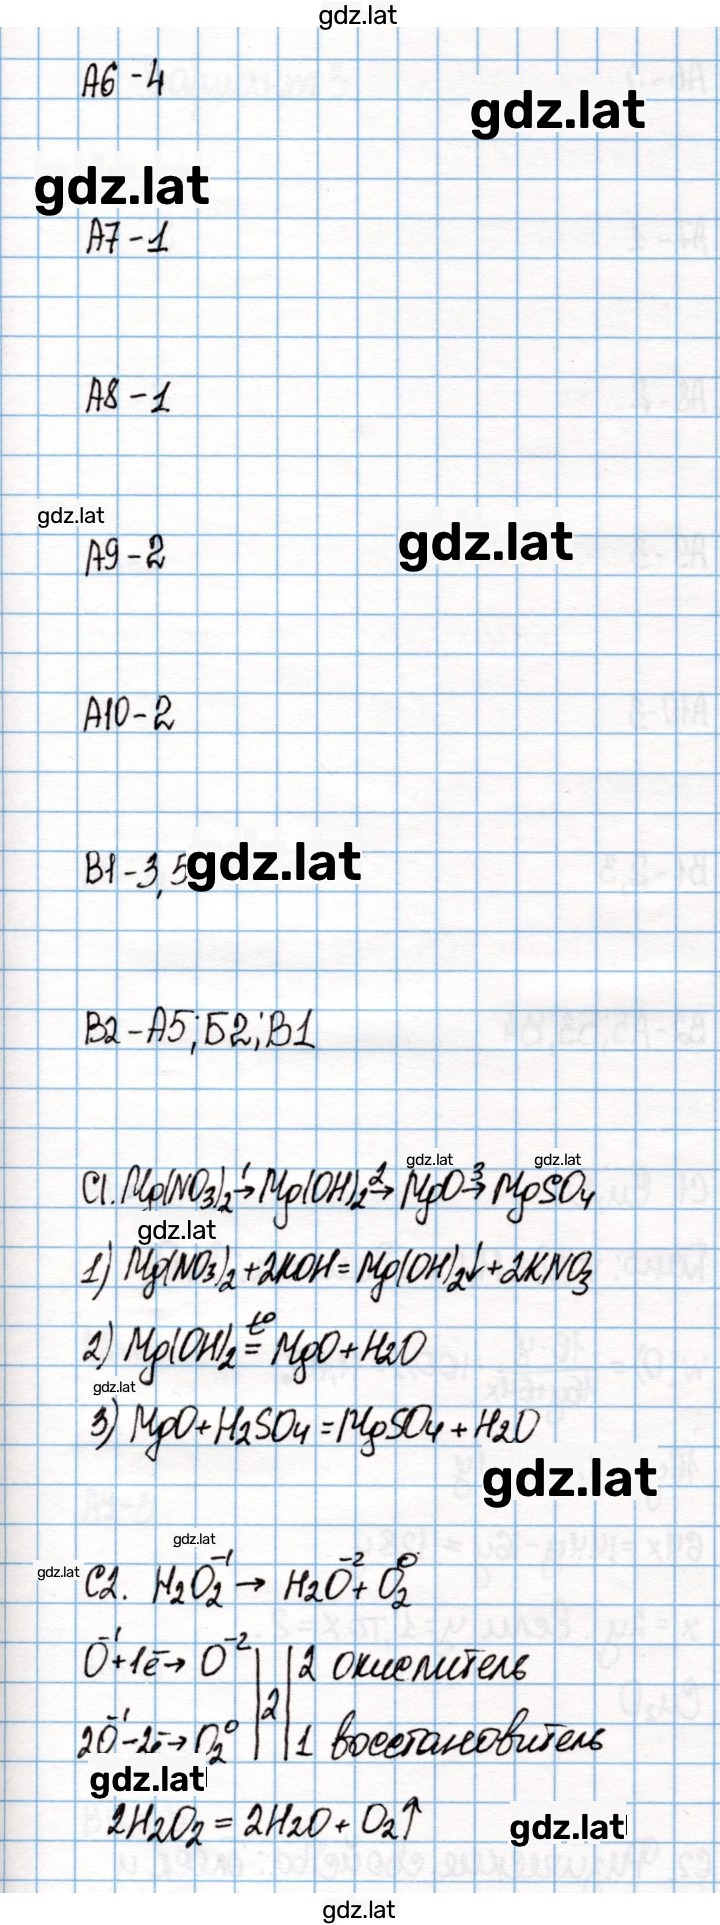 gdz.lat
А6 - 4
gdz.lat
gdz.lat
А7 - 1
А8 - 1
gdz.lat
gdz.lat
А9 - 2
А10 - 2
В1 - 3,5
gdz.lat
В2 - А5; Б2; В1
gdz.lat gdz.lat
С1. Mg(NO₃)₂ →¹ Mg(OH)₂ →² MgO →³ MgSO₄
gdz.lat
1) Mg(NO₃)₂ + 2KOH = Mg(OH)₂↓ + 2KNO₃
2) Mg(OH)₂ =ᵗ° MgO + H₂O
gdz.lat
3) MgO + H₂SO₄ = MgSO₄ + H₂O
gdz.lat
gdz.lat
gdz.lat
С2. H₂O₂⁻¹ → H₂O⁻² + O₂⁰
O⁻¹ + 1ē → O⁻² | 2 | 2 окислитель
2O⁻¹ - 2ē → O₂⁰ | | 1 восстановитель
gdz.lat
2H₂O₂ = 2H₂O + O₂↑
gdz.lat
gdz.lat